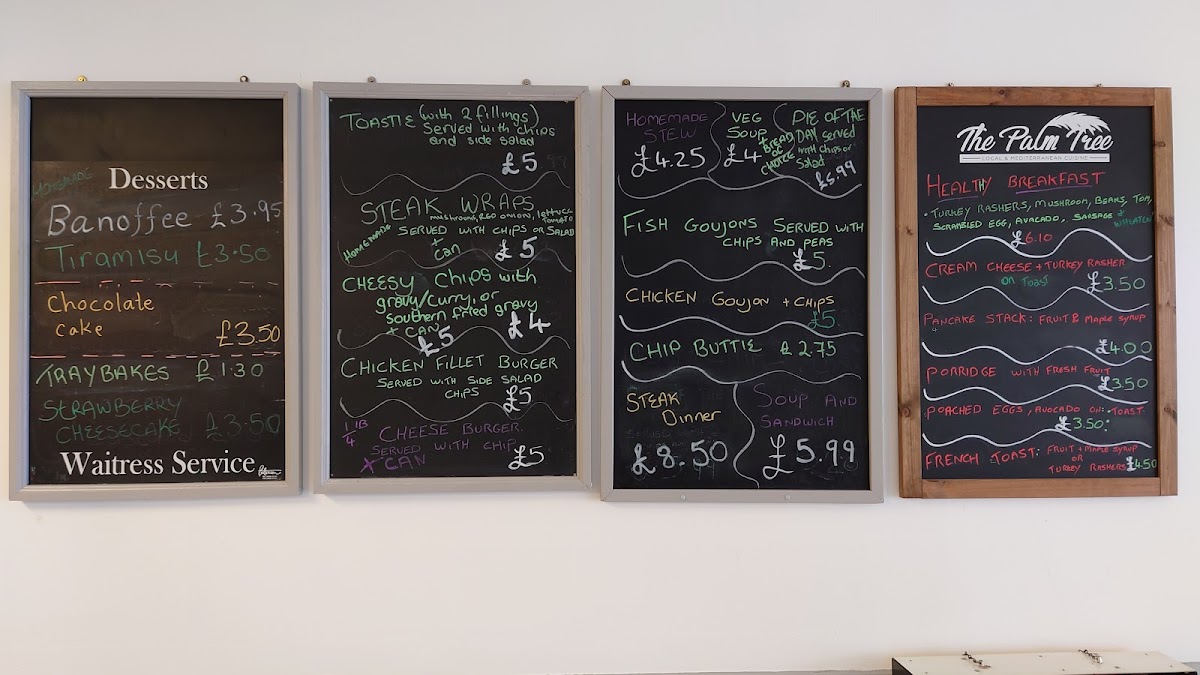 Homemade
Desserts
Banoffee £3.95
Tiramisu £3.50
Chocolate
Cake
£3.50
TRAYBAKES £1.30
STRAWBERRY
CHEESECAKE £3.50
Waitress Service
TOASTIE (with 2 fillings)
Served with chips
and side salad
£5
STEAK WRAPS
mushrooms, RED ONIONS, lettuce
TOMATO
HOMEMADE
SERVED WITH CHIPS OR SALAD
+ Can
£5
CHEESY CHIPS with
gravy/curry, or
Southern fried gravy
+ CAN
£5
£4
CHICKEN FILLET BURGER
SERVED WITH SIDE SALAD
CHIPS
£5
1/4 lB
CHEESE BURGER
SERVED WITH CHIP
+ CAN
£5
HOMEMADE
STEW
£4.25
VEG
SOUP
+ BREAD
OF
CHOICE
£4
PIE OF THE
DAY served
with chips or
salad
£5.99
FISH GOUJONS SERVED WITH
CHIPS AND PEAS
£5
CHICKEN GOUJON + CHIPS
£5
CHIP BUTTIE £2.75
STEAK
Dinner
£8.50
SOUP AND
SANDWICH
£5.99
The Palm Tree
LOCAL & MEDITERRANEAN CUISINE
HEALTHY BREAKFAST
· TURKEY RASHERS, MUSHROOM, BEANS, TOM,
SCRAMBLED EGG, AVACADO, SAUSAGE &
WHEATEN
£6.10
CREAM CHEESE + TURKEY RASHER
ON TOAST
£3.50
PANCAKE STACK: FRUIT & MAPLE SYRUP
£4.00
PORRIDGE WITH FRESH FRUIT
£3.50
POACHED EGGS, AVOCADO ON: TOAST
£3.50:
FRENCH TOAST: FRUIT + MAPLE SYRUP
OR
TURKEY RASHERS £4.50